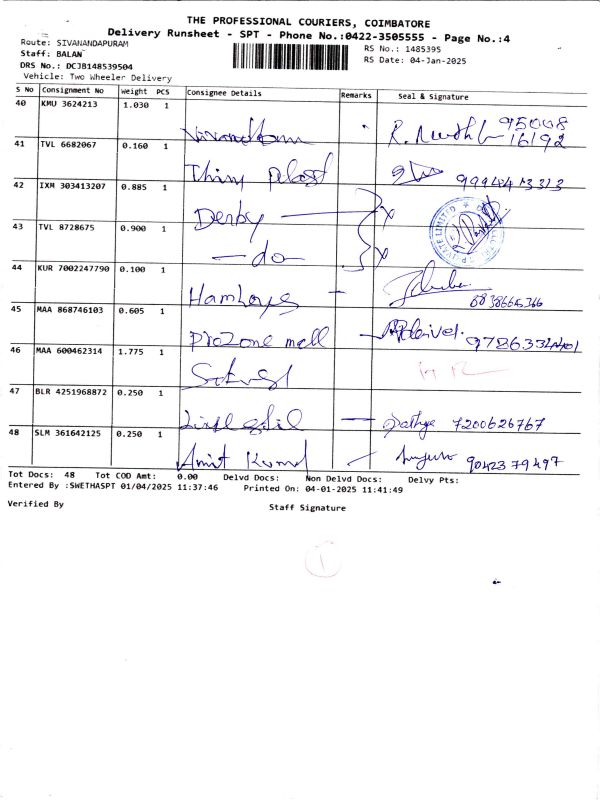 THE PROFESSIONAL COURIERS, COIMBATORE
Delivery Runsheet - SPT - Phone No.:0422-3505555 - Page No.:4
Route: SIVANANDAPURAM
RS No.: 1485395
Staff: BALAN
RS Date: 04-Jan-2025
DRS No.: DCJB148539504
Vehicle: Two Wheeler Delivery
S No Consignment No Weight PCS Consignee Details Remarks Seal & Signature
40 KMU 3624213 1.030 1 95008 16192
41 TVL 6682067 0.160 1
42 IXM 303413207 0.885 1 Derby
43 TVL 8728675 0.900 1 — do —
44 KUR 7002247790 0.100 1
45 MAA 868746103 0.605 1 Prozone mall
46 MAA 600462314 1.775 1
47 BLR 4251968872 0.250 1 7200626767
48 SLM 361642125 0.250 1 Amit Kumar 9042379497
Tot Docs: 48 Tot COD Amt: 0.00 Delvd Docs: Non Delvd Docs: Delvy Pts:
Entered By :SWETHASPT 01/04/2025 11:37:46 Printed On: 04-01-2025 11:41:49
Verified By
Staff Signature
1